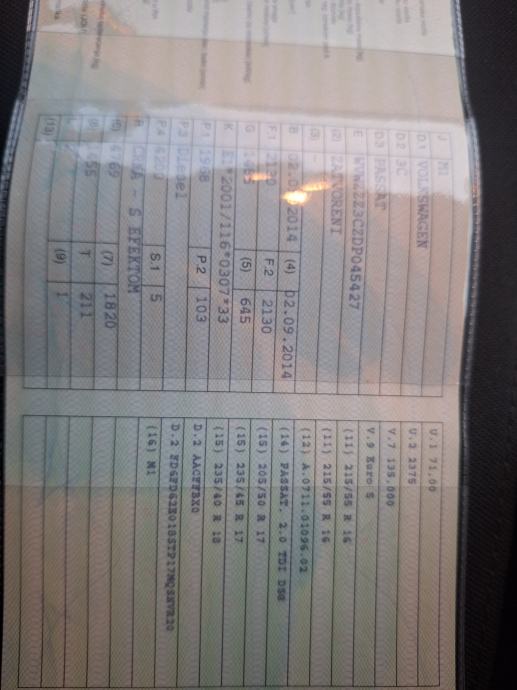 J M1
D.1 VOLKSWAGEN
D.2 3C
D.3 PASSAT
E WVWZZZ3CZDP045427
(2) ZATVORENI
(3) -
B 02.0 2014 (4) 02.09.2014
F.1 2130 F.2 2130
G (5) 645
K *2001/116*0307*33
P.1 1968 P.2 103
P.3 Diesel
P.4 4200 S.1 5
R CRNA - S EFEKTOM
(6) 4769 (7) 1820
(8) T 211
L (9) 1
(13)
U.1 71.00
U.2 2375
V.7 135.000
V.9 Euro 5
(11) 215/55 R 16
(11) 215/55 R 16
(12) A.0711.01096.02
(14) PASSAT. 2.0 TDI DSG
(15) 205/50 R 17
(15) 235/45 R 17
(15) 235/40 R 18
D.2 AACFFBX0
D.2
(16) M1